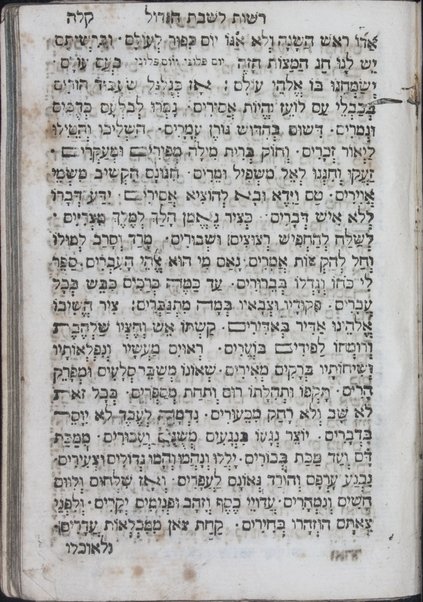 רשות לשבת הגדול קלה
אדו ראש השנה ולא אנו יום כפור לעולם׃ וברשיתם
יש לנו חג המצות הזה יום פלוני ויום פלוני בעם עולם׃
ישמחנו בו אלהי עולם׃ אז שעבוד הורים
עם לועז היות אסירים׃ נפזרו לבלעם כדובים
ונמרים׃ דשום בחדוש גורן עמרים׃ השליכו והטילו
ליאור זכרים׃ וחוק ברית מילה מפירים ומעקרים
זעקו וחננו לאל משפיל ומרים׃ חנונם הקשיב משמי
אוירים׃ טס וידא ובא להוציא אסירים׃ ידע דברו
ללא איש דברים׃ כציר נאמן הלך למלך מצרים׃
לשלח להחפיש רצוצים ושבורים׃ מרד וסרב לפולו
וחל להקשות אמרים׃ נאם מי הוא אלהי העברים׃ ספרו
לי כחו וגדלו בברורים׃ עד כמה כרכים כבש בכל
עברים׃ פקודיו וצבאיו בכמה מתגברים׃ ציר השיבו
אלהינו אדיר באדירים׃ קשתו אש וחציו שלהבת
ורומחו לפידים בוערים׃ ראוים מעשיו ונפלאותיו
ושיחותיו ברקים מאירים׃ שאונו משבר סלעים ומפרק
הרים׃ תקפו ותהלתו רום ותחת מספרים׃ בכל זאת
לא שב ולא רחק מכעורים׃ נדמה לעבד לא יוסר
בדברים׃ יוצר נגשו בנגעים משנים יעבורים׃ ממכת
דם ועד מכת בכורים׃ יללו ונהמו והמו גדולים וצעירים׃
נבנע ערפם והורד גאונם לעפרים׃ ואז שלחום ולוום
חשים ונמהרים׃ עדויי כסף וזהב ופנינים יקרים׃ ולפני
צאתם הוזהרו בחירים׃ קחת צאן ממכלאות עדרים׃
נלאוכלו